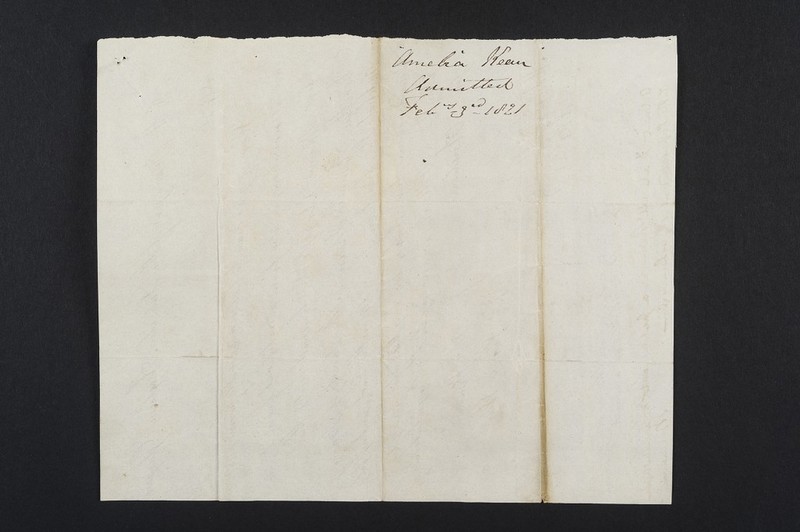 Amelia Kean
Admitted
Feby 3rd 1821